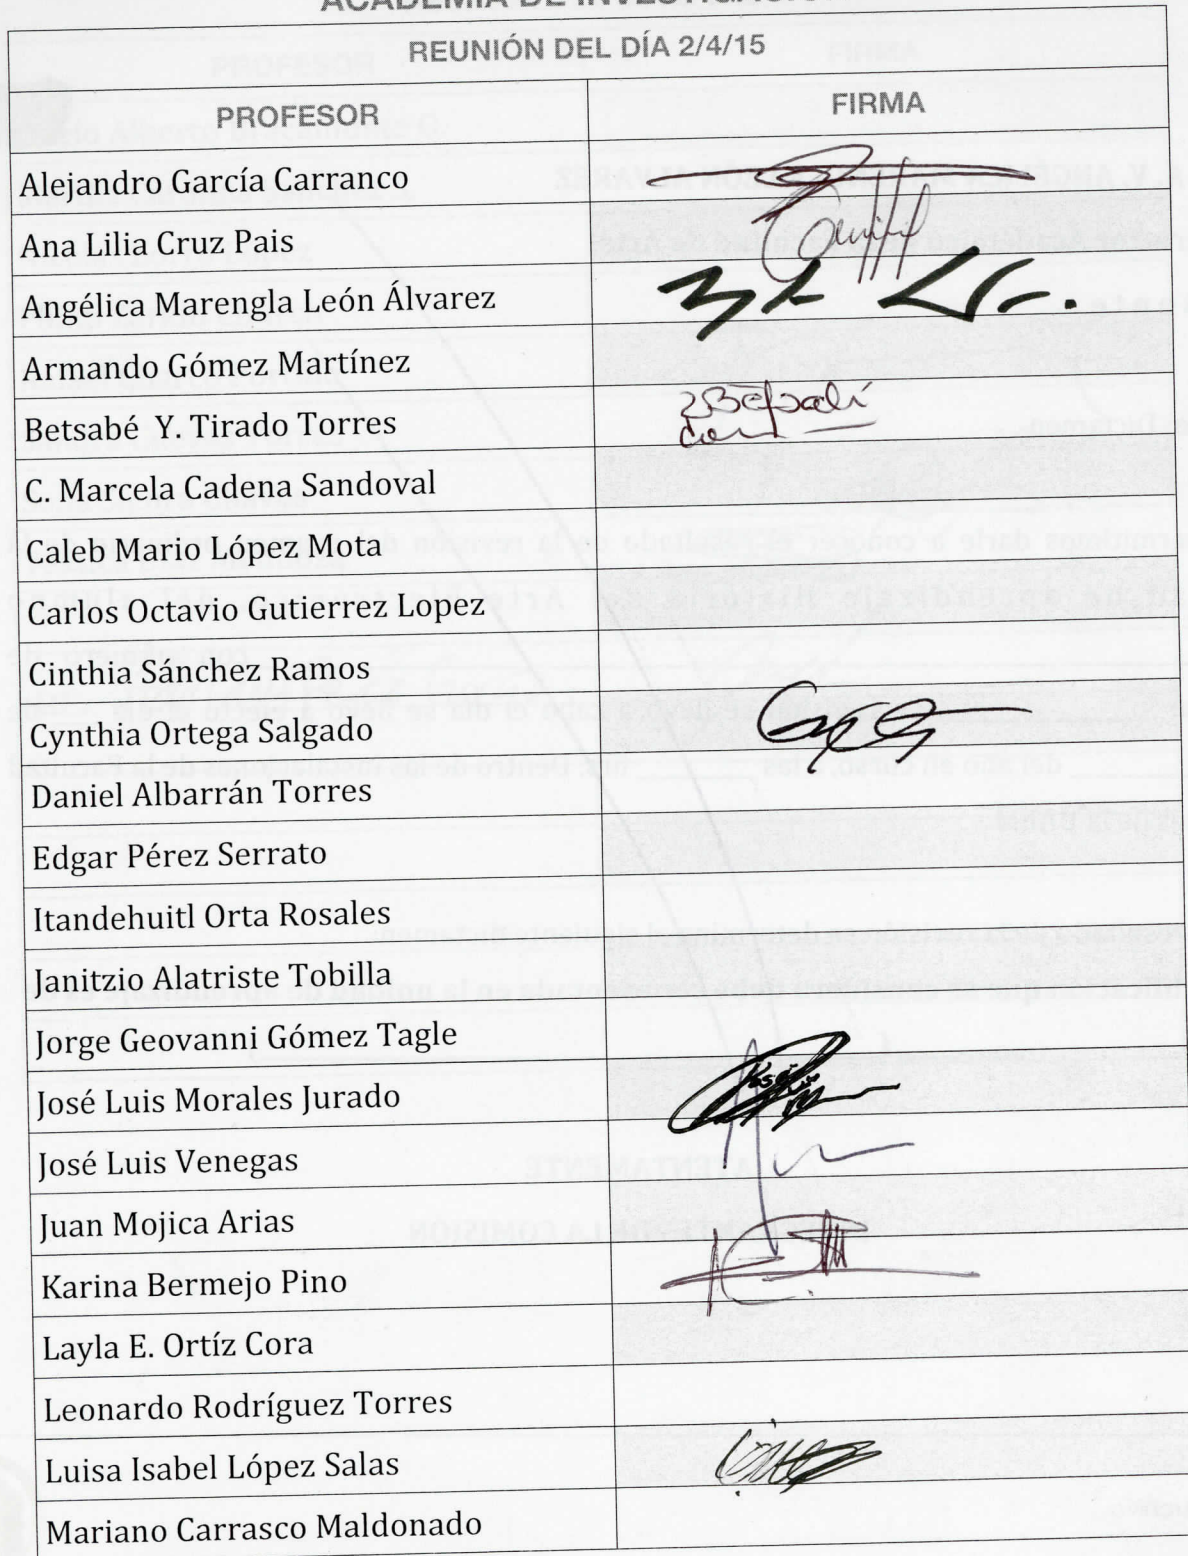 REUNIÓN DEL DÍA 2/4/15
PROFESOR FIRMA
Alejandro García Carranco
Ana Lilia Cruz Pais
Angélica Marengla León Álvarez
Armando Gómez Martínez
Betsabé Y. Tirado Torres
C. Marcela Cadena Sandoval
Caleb Mario López Mota
Carlos Octavio Gutierrez Lopez
Cinthia Sánchez Ramos
Cynthia Ortega Salgado
Daniel Albarrán Torres
Edgar Pérez Serrato
Itandehuitl Orta Rosales
Janitzio Alatriste Tobilla
Jorge Geovanni Gómez Tagle
José Luis Morales Jurado
José Luis Venegas
Juan Mojica Arias
Karina Bermejo Pino
Layla E. Ortíz Cora
Leonardo Rodríguez Torres
Luisa Isabel López Salas
Mariano Carrasco Maldonado